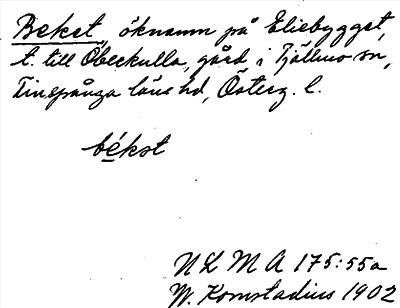 Bekst, öknamn på Eliebygget,
t. till Obeckulla, gård i Tjällmo sn,
Finspånga läns hd, Österg. l.
békst
N L M A 175:55a
W. Komstadius 1902